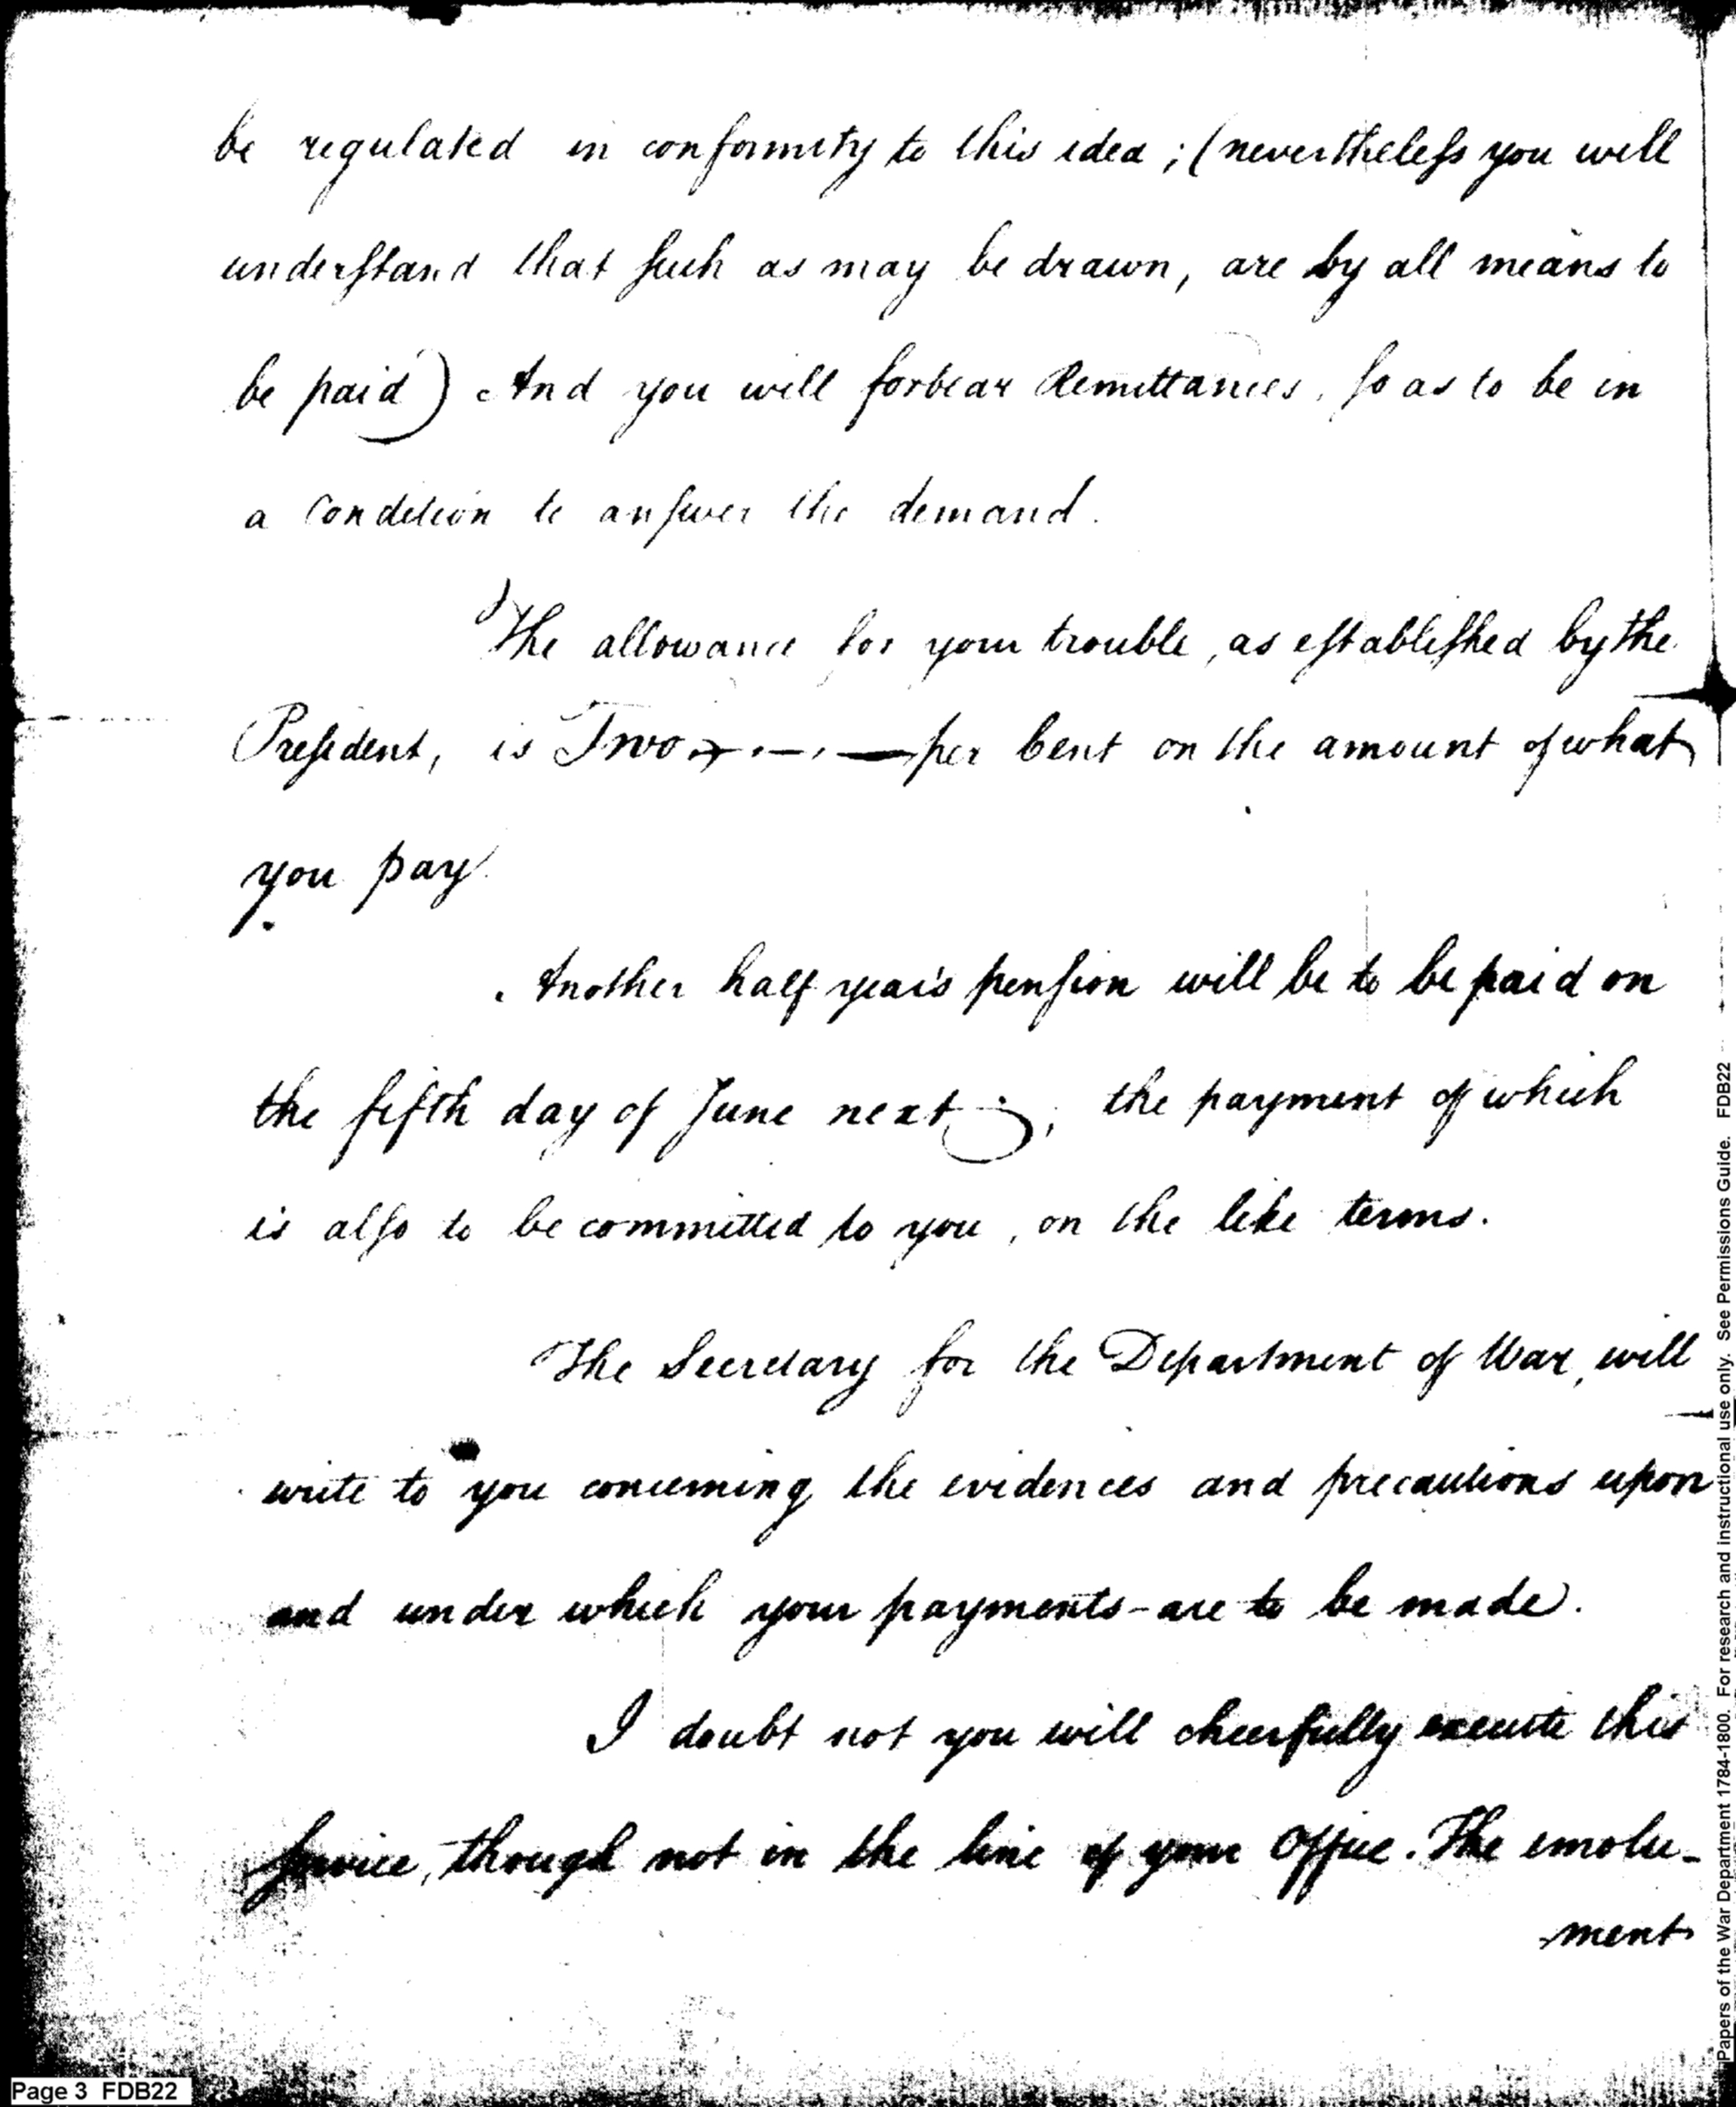 be regulated in conformity to this idea; (nevertheleſs you will
underſtand that ſuch as may be drawn, are by all means to
be paid) And you will forbear Remittances, ſo as to be in
a Condition to anſwer the demand.
The allowance for your trouble, as eſtabliſhed by the
Preſident, is Two — per Cent on the amount of what
you pay.
Another half year's penſion will be to be paid on
the fifth day of June next; the payment of which
is alſo to be committed to you, on the like terms.
The Secretary for the Department of War, will
write to you concerning the evidences and precautions upon
and under which your payments are to be made.
I doubt not you will cheerfully execute this
ſervice, though not in the line of your Office. The emolu-
ment
Page 3 FDB22
Papers of the War Department 1784-1800. For research and instructional use only. See Permissions Guide. FDB22